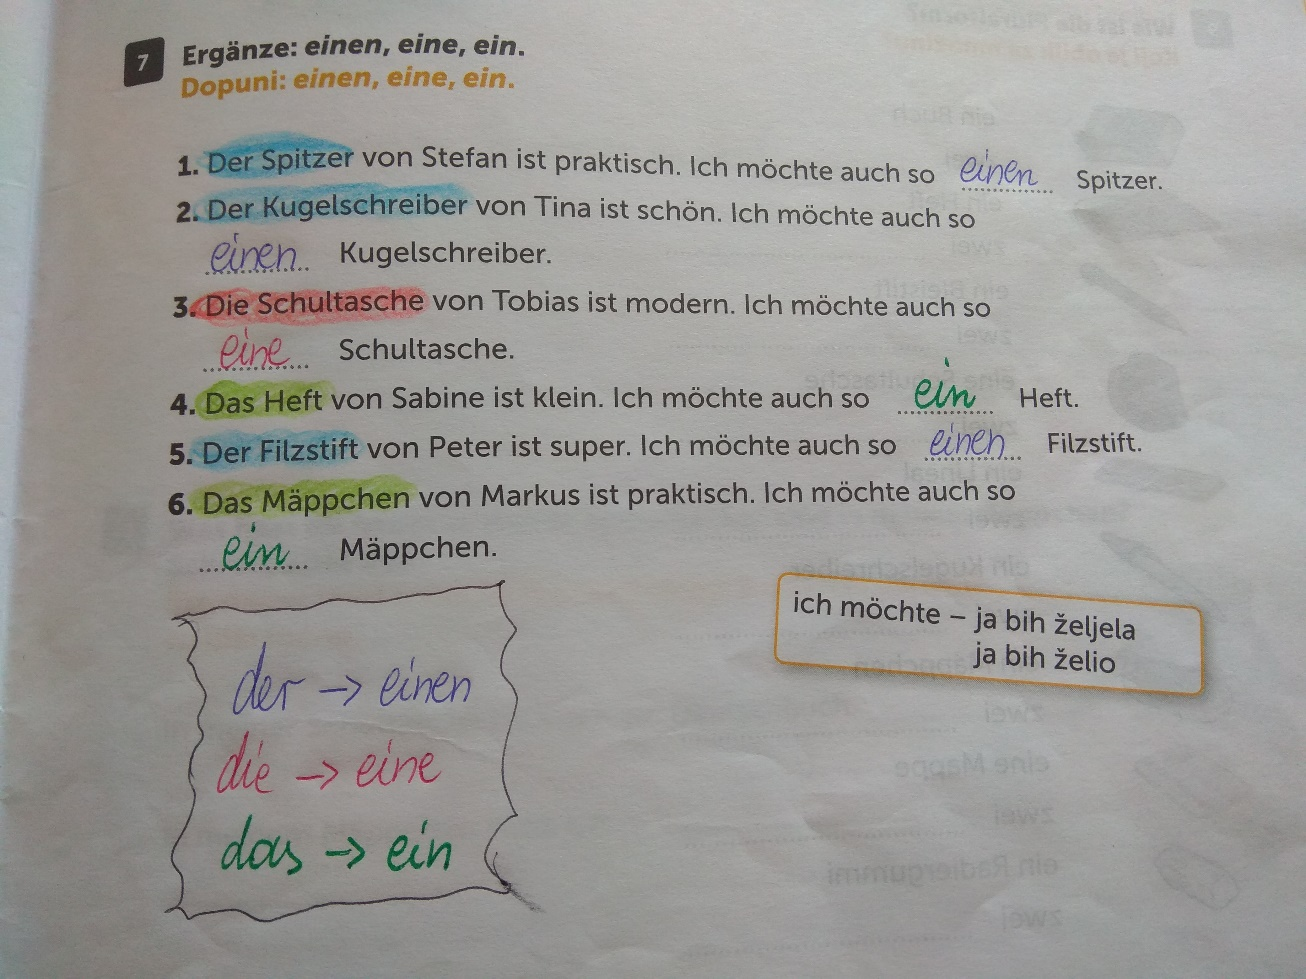 7 Ergänze: einen, eine, ein.
Dopuni: einen, eine, ein.
1. Der Spitzer von Stefan ist praktisch. Ich möchte auch so einen Spitzer.
2. Der Kugelschreiber von Tina ist schön. Ich möchte auch so
einen Kugelschreiber.
3. Die Schultasche von Tobias ist modern. Ich möchte auch so
eine Schultasche.
4. Das Heft von Sabine ist klein. Ich möchte auch so ein Heft.
5. Der Filzstift von Peter ist super. Ich möchte auch so einen Filzstift.
6. Das Mäppchen von Markus ist praktisch. Ich möchte auch so
ein Mäppchen.
ich möchte – ja bih željela
ja bih želio
der → einen
die → eine
das → ein